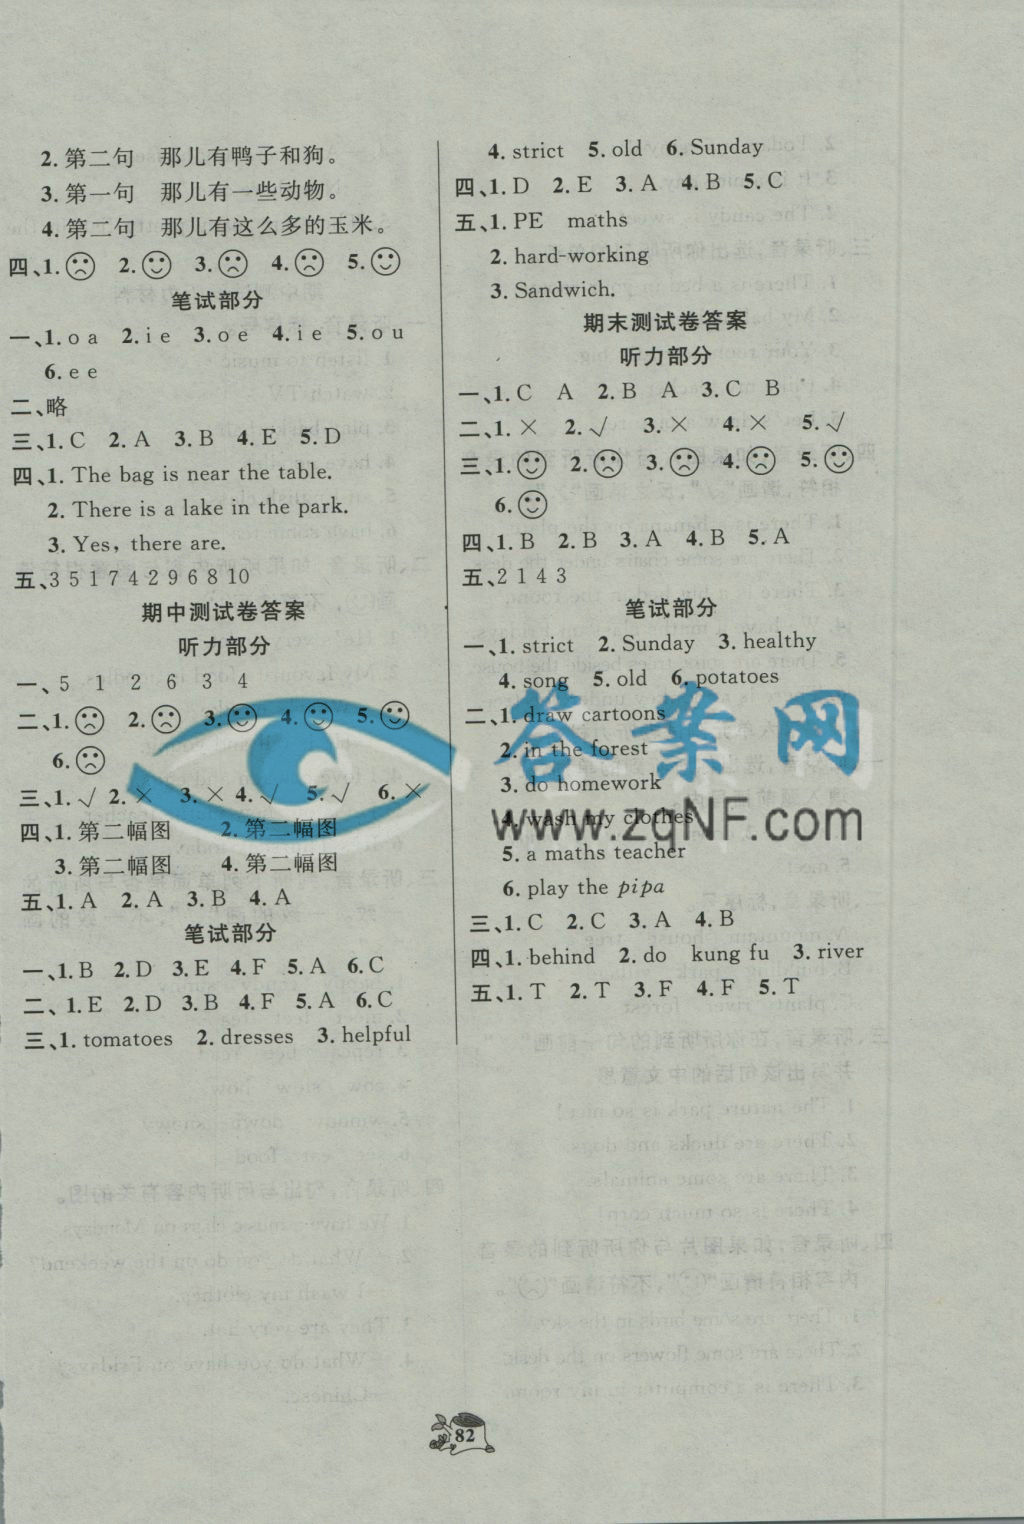 2. 第二句　那儿有鸭子和狗。
3. 第一句　那儿有一些动物。
4. 第二句　那儿有这么多的玉米。
四、1. 2. 3. 4. 5.
笔试部分
一、1. o a 2. i e 3. o e 4. i e 5. o u
6. e e
二、略
三、1. C 2. A 3. B 4. E 5. D
四、1. The bag is near the table.
2. There is a lake in the park.
3. Yes, there are.
五、3 5 1 7 4 2 9 6 8 10
期中测试卷答案
听力部分
一、5 1 2 6 3 4
二、1. 2. 3. 4. 5.
6.
三、1. √ 2. × 3. × 4. √ 5. √ 6. ×
四、1. 第二幅图 2. 第二幅图
3. 第二幅图 4. 第二幅图
五、1. A 2. A 3. B 4. A
笔试部分
一、1. B 2. D 3. E 4. F 5. A 6. C
二、1. E 2. D 3. B 4. F 5. A 6. C
三、1. tomatoes 2. dresses 3. helpful
4. strict 5. old 6. Sunday
四、1. D 2. E 3. A 4. B 5. C
五、1. PE maths
2. hard-working
3. Sandwich.
期末测试卷答案
听力部分
一、1. C A 2. B A 3. C B
二、1. × 2. √ 3. × 4. × 5. √
三、1. 2. 3. 4. 5.
6.
四、1. B 2. B 3. A 4. B 5. A
五、2 1 4 3
笔试部分
一、1. strict 2. Sunday 3. healthy
4. song 5. old 6. potatoes
二、1. draw cartoons
2. in the forest
3. do homework
4. wash my clothes
5. a maths teacher
6. play the pipa
三、1. C 2. C 3. A 4. B
四、1. behind 2. do kung fu 3. river
五、1. T 2. T 3. F 4. F 5. T
答案网
www.zqNF.com
82